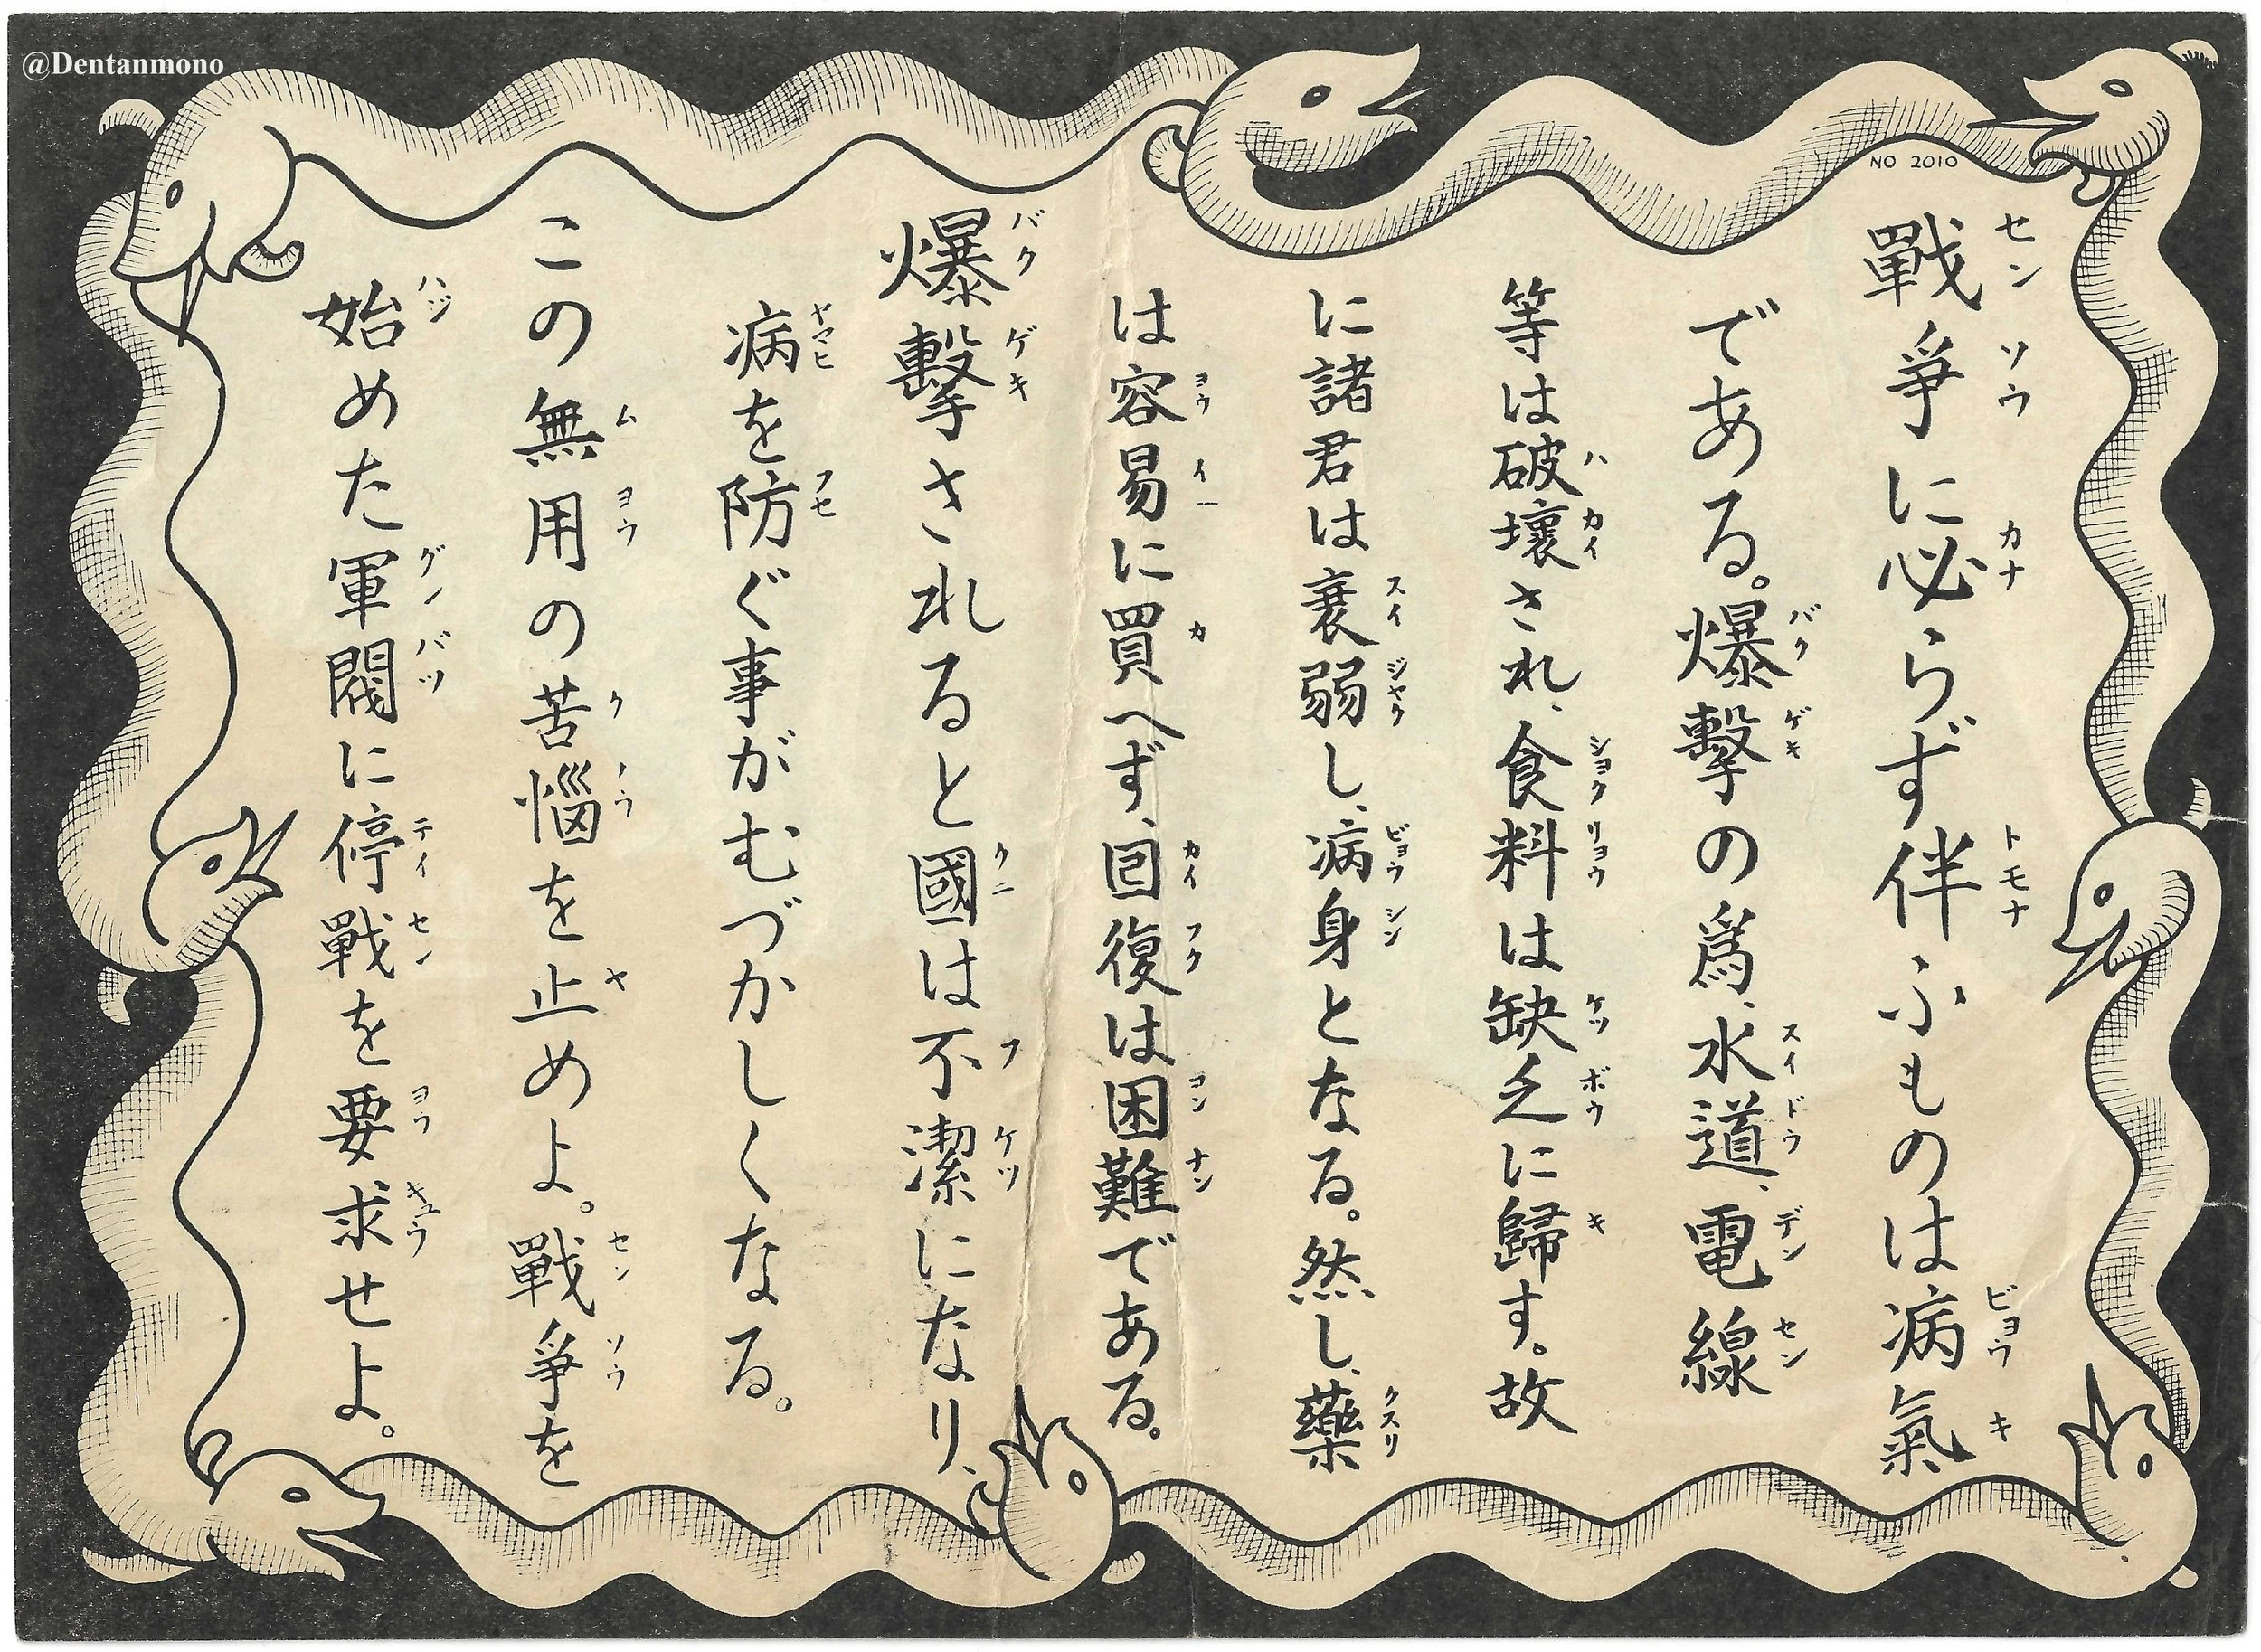 @Dentanmono
NO 2010
戰爭に必らず伴ふものは病氣
である。爆撃の爲、水道、電線
等は破壞され、食料は缺乏に歸す。故
に諸君は衰弱し、病身となる。然し、藥
は容易に買へず、囘復は困難である。
爆撃されると國は不潔になり、
病を防ぐ事がむづかしくなる。
この無用の苦惱を止めよ。戰爭を
始めた軍閥に停戰を要求せよ。